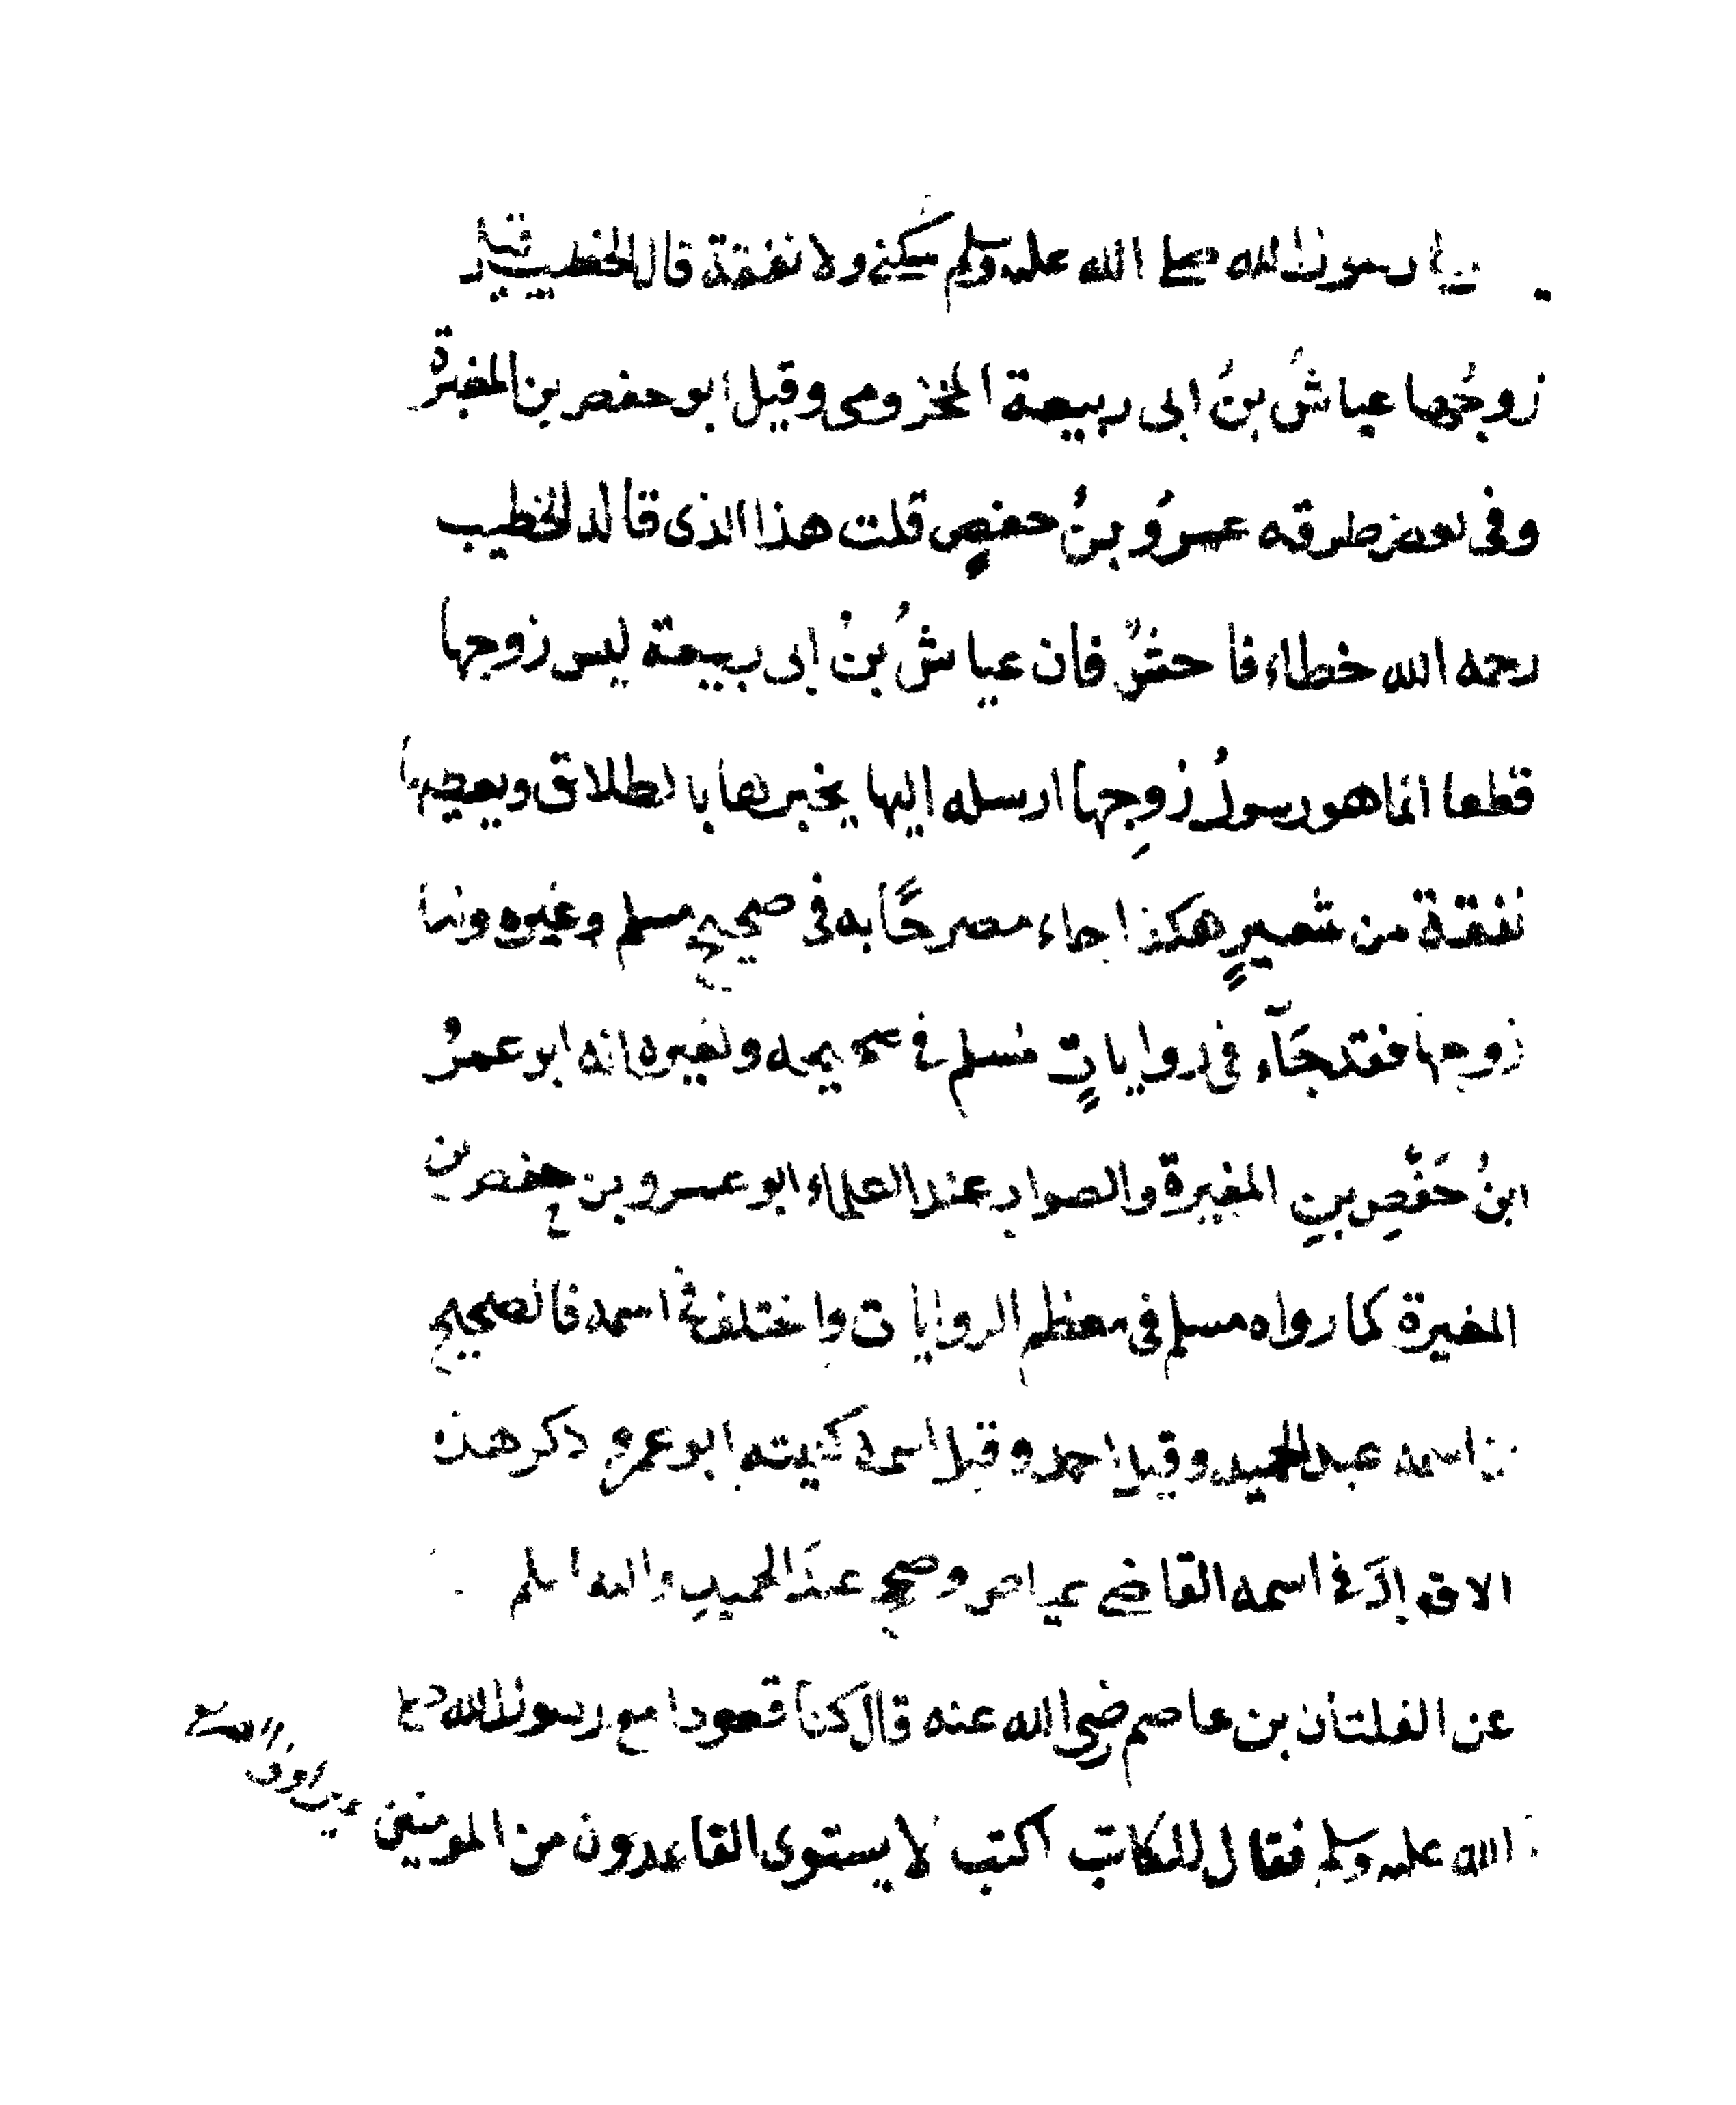 رسول الله صلى الله عليه وسلم سكنى ولا نفقة قال الخطيب قيل
زوجُها عياشُ بنُ ابى ربيعة المخزومى وقيل ابو حفص بن المغيرة
وفى بعض طرقه عمرُو بنُ حفصٍ قلت هذا الذى قاله الخطيب
رحمه الله خطاء فاحشٌ فان عياشُ بنُ ابى ربيعة ليس زوجها
قطعا انما هو رسولُ زوجِها ارسله اليها يخبرها بالطلاق ويعطيها
نفقة من شعيرٍ هكذا جاء مصرحًا به فى صحيح مسلم وغيره واما
زوجها فقد جَآء فى رواياتٍ مُسلم فى صحيحه وغيره انه ابو عمرُ
ابنُ حَفْصِ بنِ المغيرة والصواب عند العلماء ابو عمرو بن حفص بن
المغيرة كما رواه مسلم فى معظم الروايات واختلف فى اسمه فالصحيح
ان اسمه عبد الحميد وقيل احمد وقيل اسمه كنيته ابو عمرو ذكر هذه
الاقوال فى اسمه القاضى عياض وصحح عبدَ الحميدِ والله اعلم
عن الفلتان بن عاصم رضى الله عنه قال كنا قعودا مع رسول الله صلى
الله عليه وسلم فقال للكاتب اكتب لا يستوى القاعدون من المومنين غير اولى الضرر